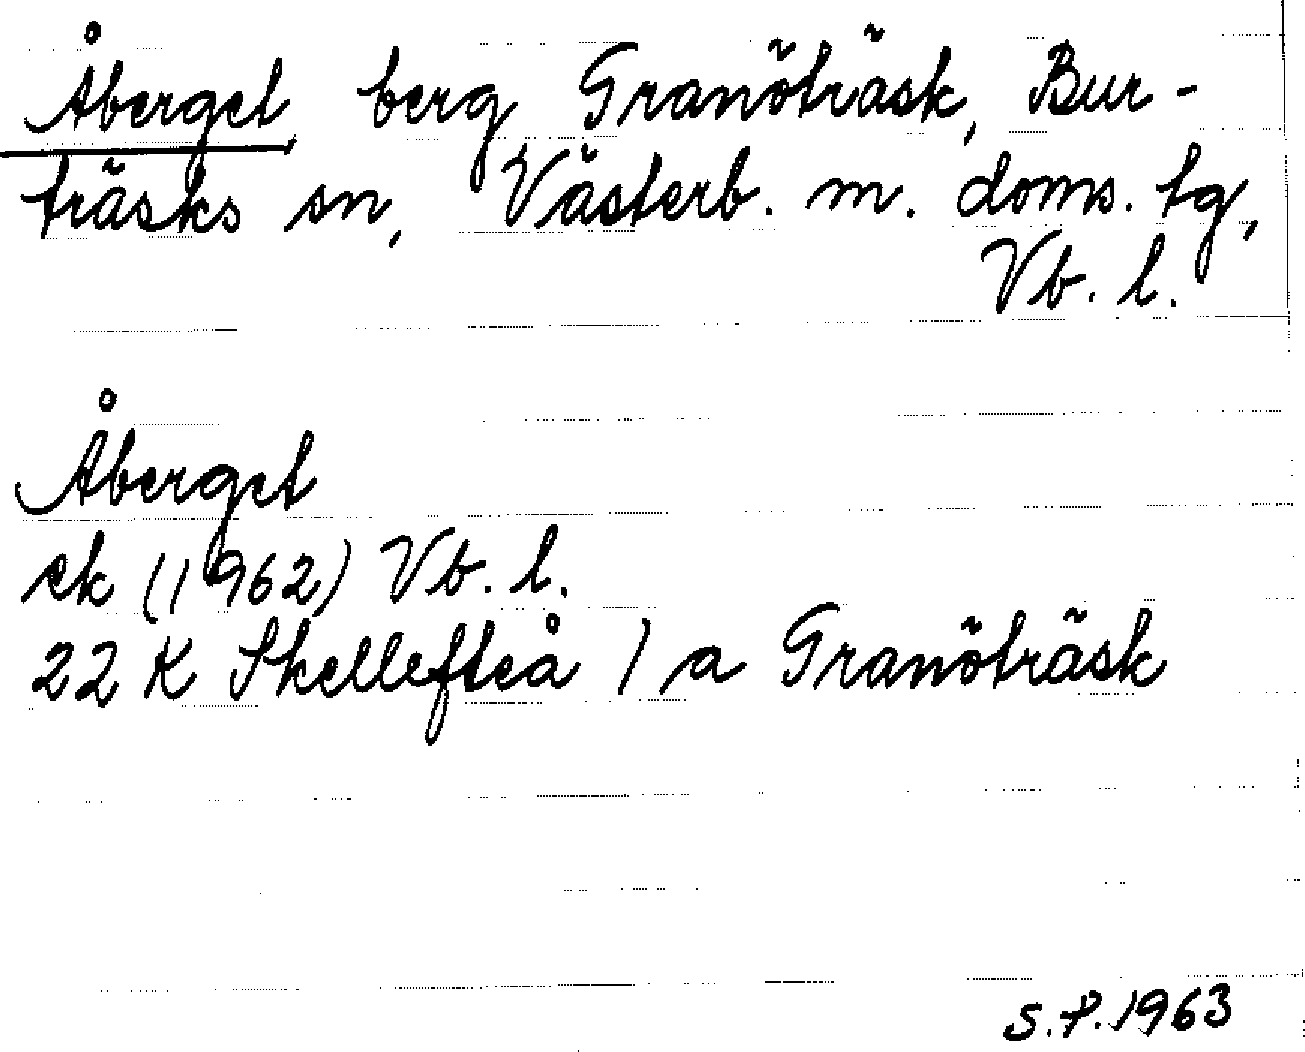 Åberget, berg, Granöträsk, Bur-
träsks sn, Västerb. m. doms. tg,
Vb. l.
Åberget
ek (1962) Vb. l.
22 K Skellefteå / a Granöträsk
S.P. 1963